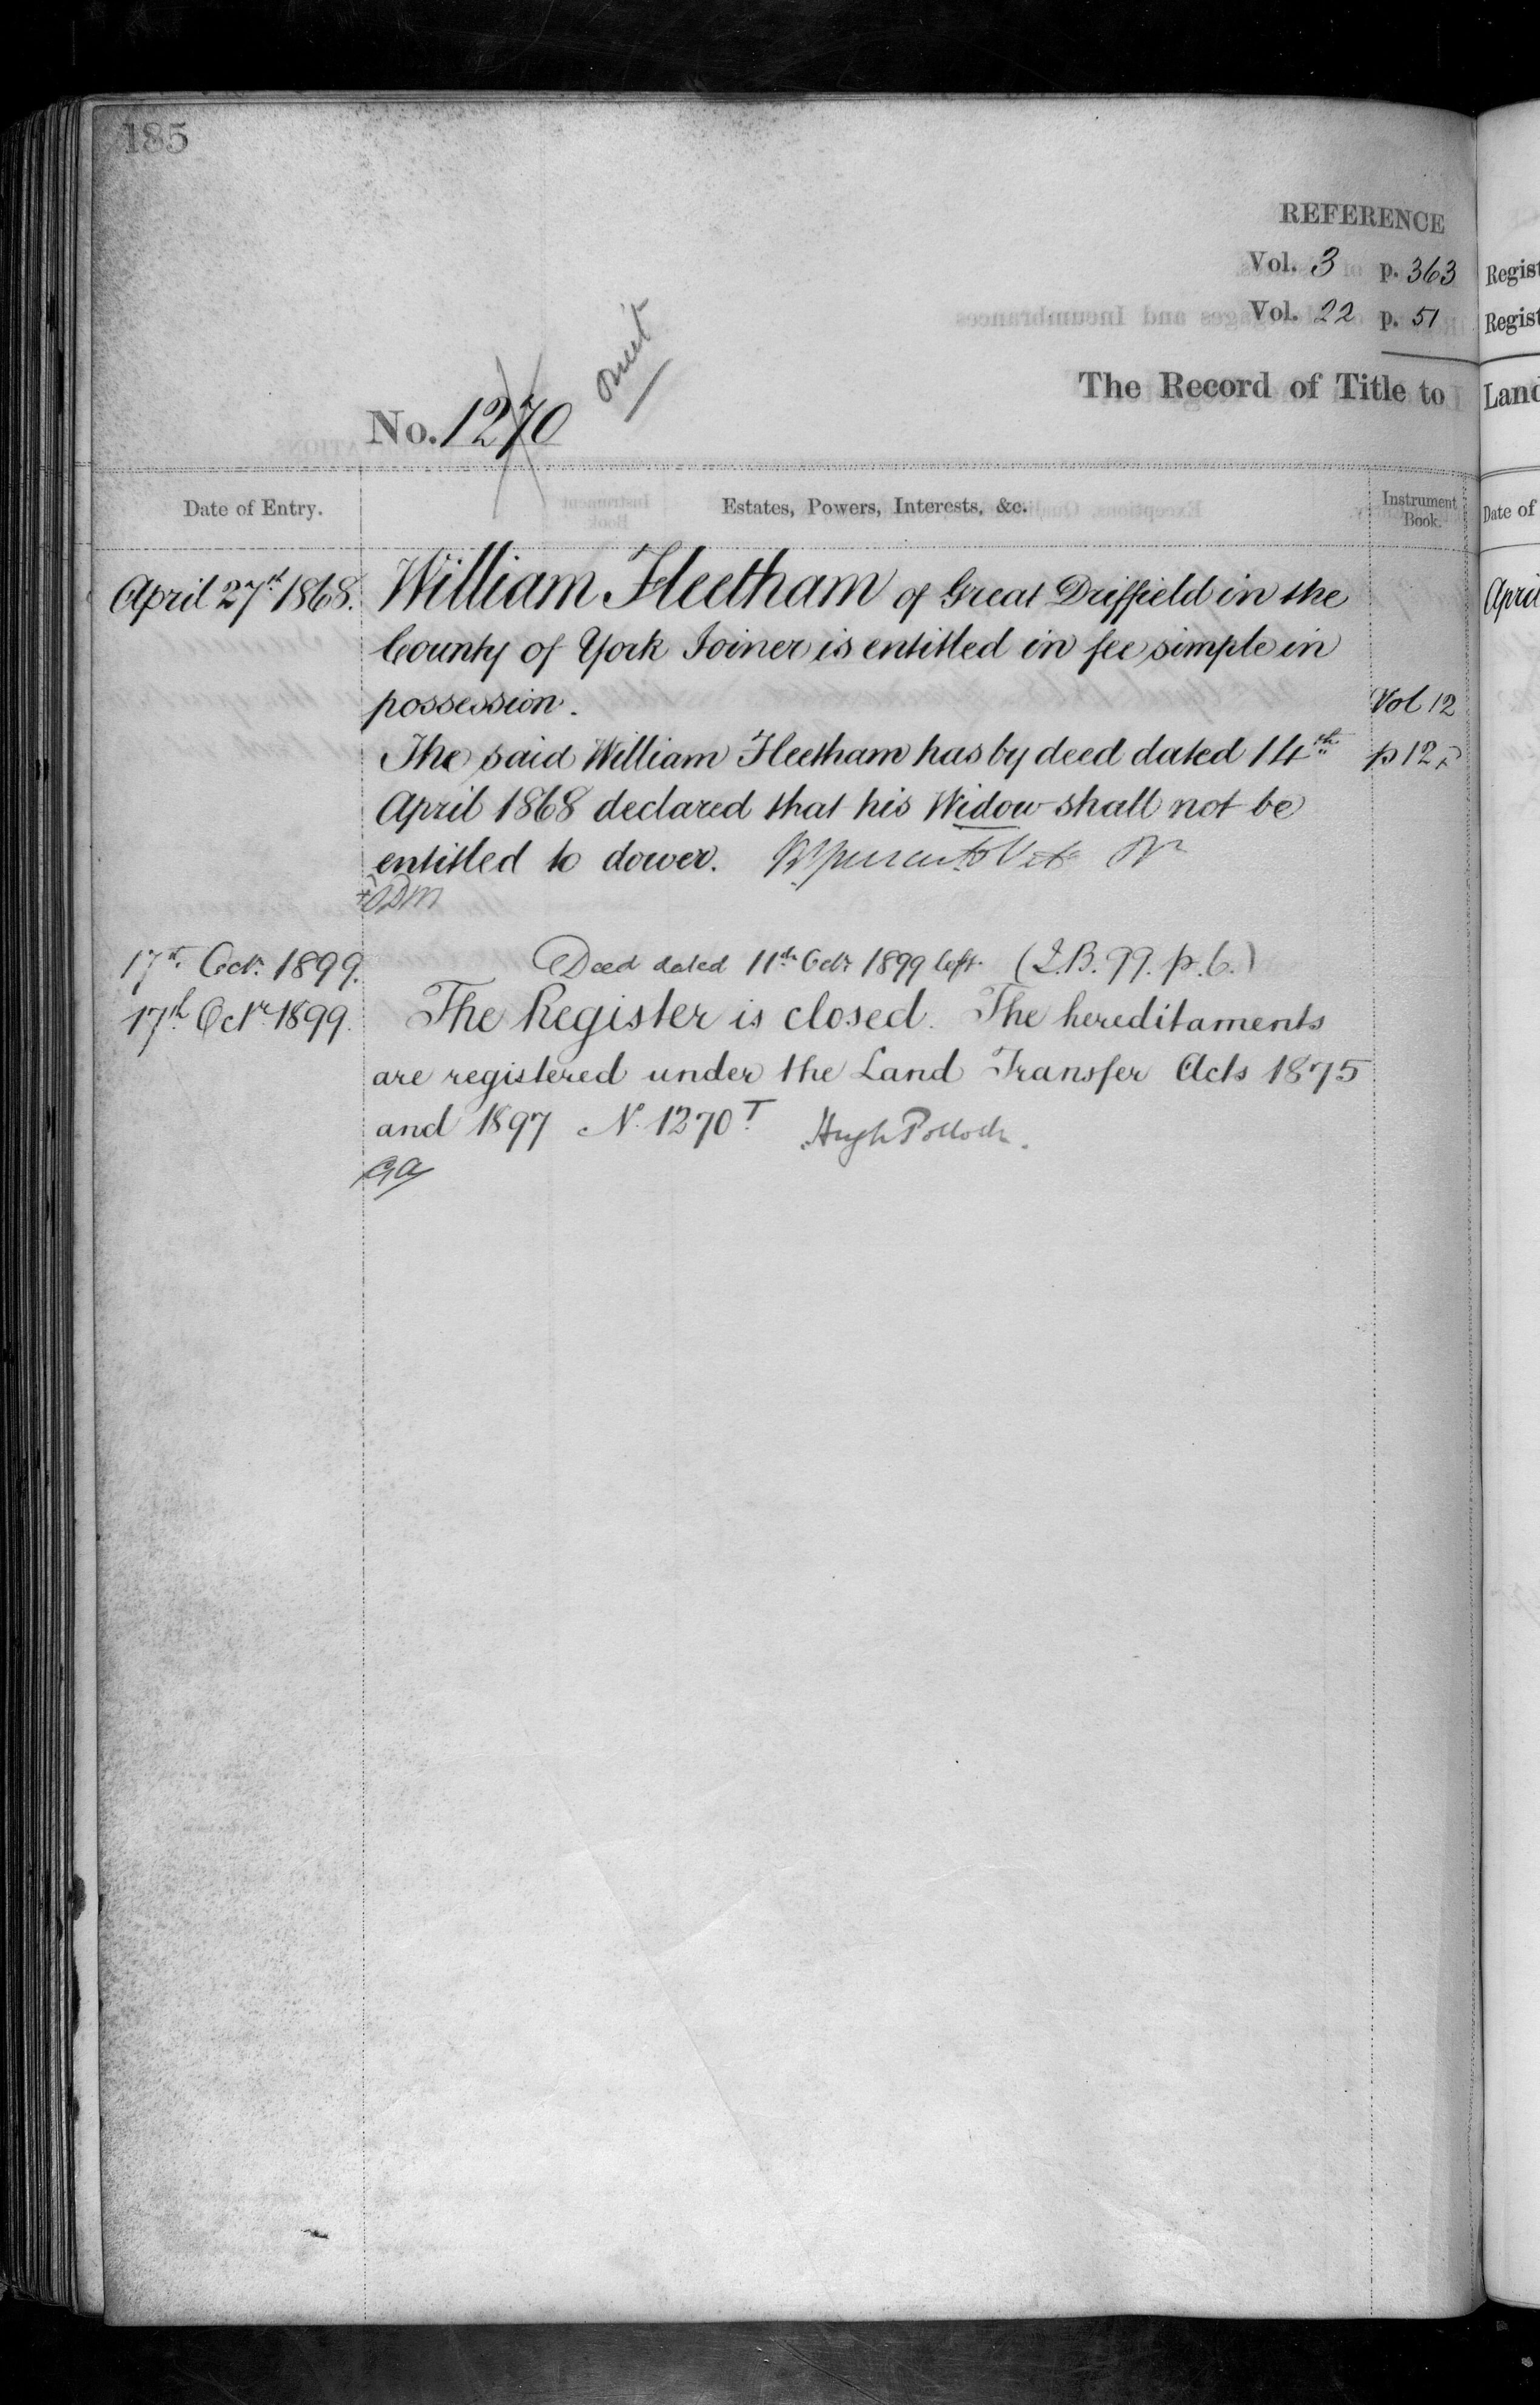 185
REFERENCE
Vol. 3 p. 363
Vol. 22 p. 51
The Record of Title to
No. 1270
Omit
Date of Entry. Estates, Powers, Interests, &c. Instrument Book.
April 27th 1868. William Fleetham of Great Driffield in the
County of York Joiner is entitled in fee simple in
possession. Vol 12
The said William Fleetham has by deed dated 14th p 12
April 1868 declared that his Widow shall not be
entitled to dower.
17th Octr. 1899. Deed dated 11th Octr 1899 left. (I.B. 99. p. 6.)
17th Octr. 1899. The Register is closed. The hereditaments
are registered under the Land Transfer Acts 1875
and 1897 No. 1270T. Hugh Pollock.
Regist
Regist
Land
Date of
April